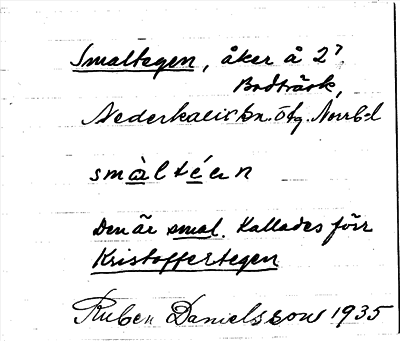 Smaltegen, åker å 2⁷
Bodträsk,
Nederkalix sn. Ö tg. Norrb. l
smàltéen
Den är smal. Kallades förr
Kristoffertegen
Ruben Danielsson 1935